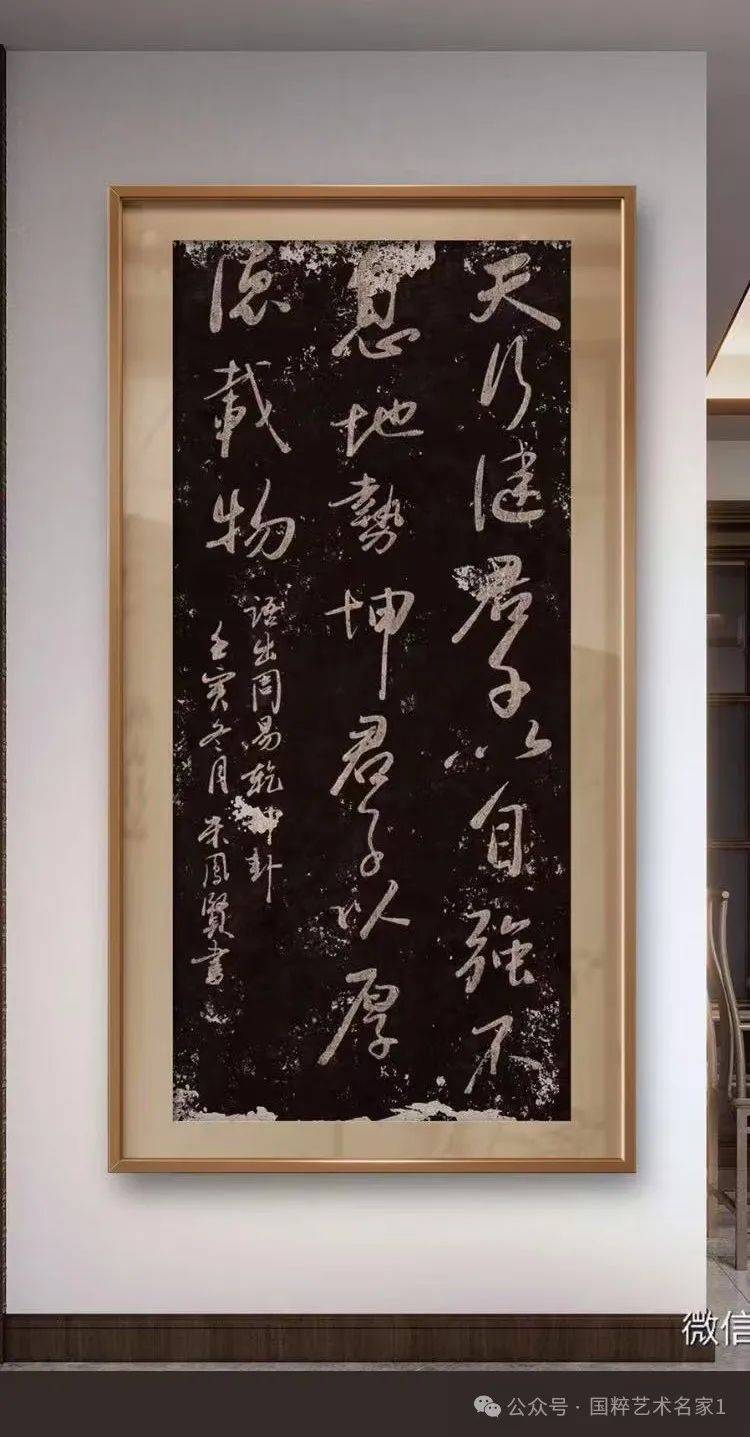 天行健君子以自強不
息地勢坤君子以厚
德載物
語出周易乾坤卦
壬寅冬月宋鳳賢書
微信
公众号·国粹艺术名家1